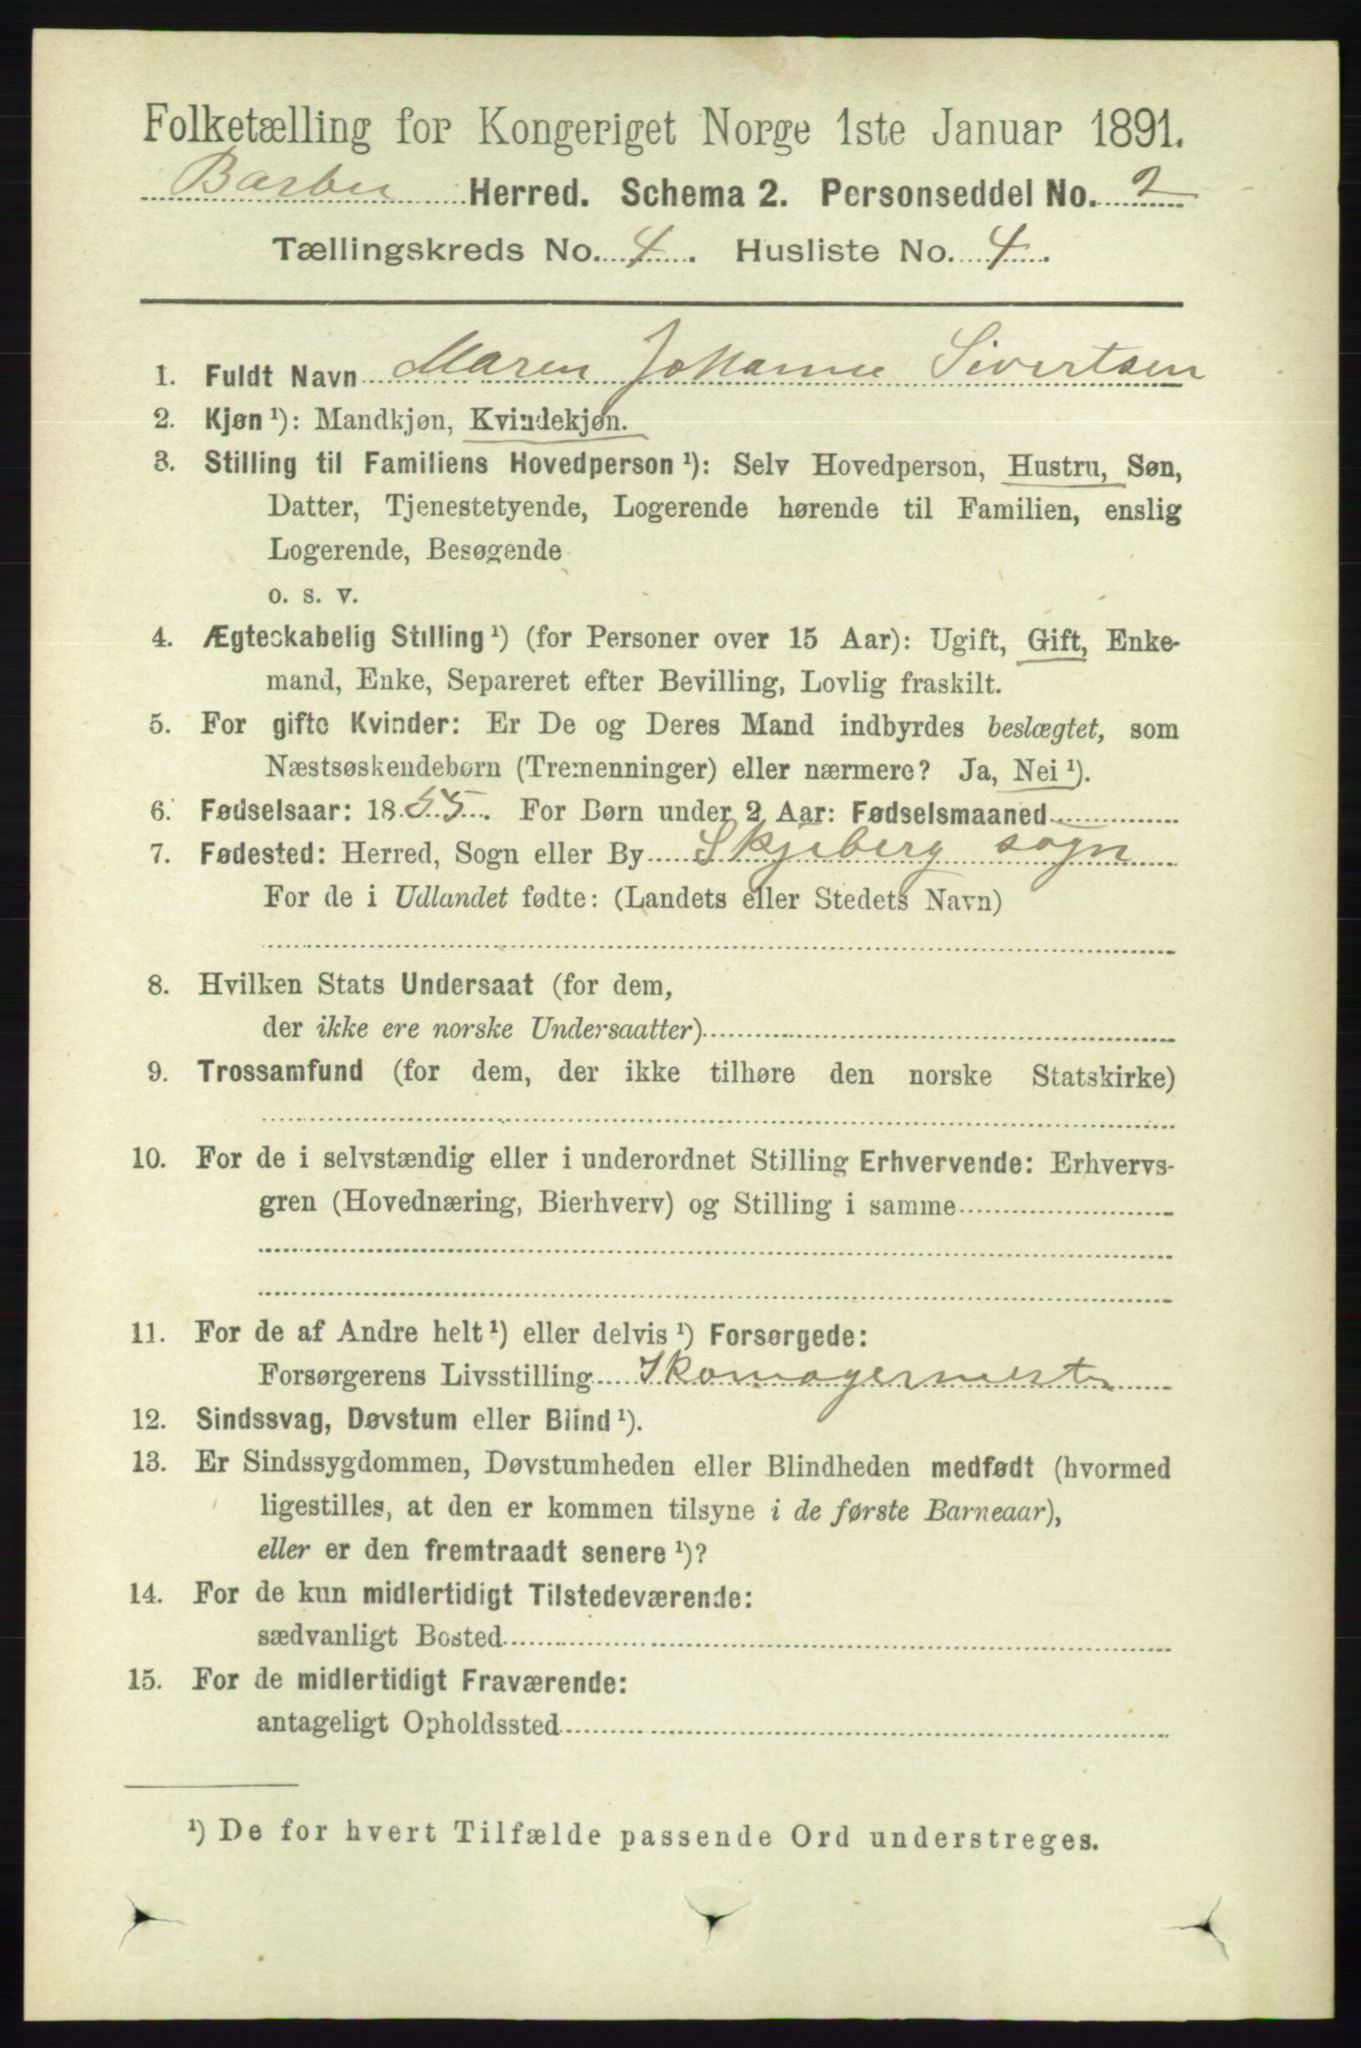 Folketælling for Kongeriget Norge 1ste Januar 1891.
Barbu Herred. Schema 2. Personseddel No. 2
Tællingskreds No. 4. Husliste No. 4.
1. Fuldt Navn Maren Johanne Sivertsen
2. Kjøn ¹): Mandkjøn, Kvindekjøn.
3. Stilling til Familiens Hovedperson ¹): Selv Hovedperson, Hustru, Søn,
Datter, Tjenestetyende, Logerende hørende til Familien, enslig
Logerende, Besøgende
o. s. v.
4. Ægteskabelig Stilling ¹) (for Personer over 15 Aar): Ugift, Gift, Enke-
mand, Enke, Separeret efter Bevilling, Lovlig fraskilt.
5. For gifte Kvinder: Er De og Deres Mand indbyrdes beslægtet, som
Næstsøskendebørn (Tremenninger) eller nærmere? Ja, Nei ¹).
6. Fødselsaar: 1855. For Børn under 2 Aar: Fødselsmaaned
7. Fødested: Herred, Sogn eller By Skjeberg sogn
For de i Udlandet fødte: (Landets eller Stedets Navn)
8. Hvilken Stats Undersaat (for dem,
der ikke ere norske Undersaatter)
9. Trossamfund (for dem, der ikke tilhøre den norske Statskirke)
10. For de i selvstændig eller i underordnet Stilling Erhvervende: Erhvervs-
gren (Hovednæring, Bierhverv) og Stilling i samme
11. For de af Andre helt ¹) eller delvis ¹) Forsørgede:
Forsørgerens Livsstilling Skomagermester
12. Sindssvag, Døvstum eller Blind ¹).
13. Er Sindssygdommen, Døvstumheden eller Blindheden medfødt (hvormed
ligestilles, at den er kommen tilsyne i de første Barneaar),
eller er den fremtraadt senere ¹)?
14. For de kun midlertidigt Tilstedeværende:
sædvanligt Bosted
15. For de midlertidigt Fraværende:
antageligt Opholdssted
¹) De for hvert Tilfælde passende Ord understreges.